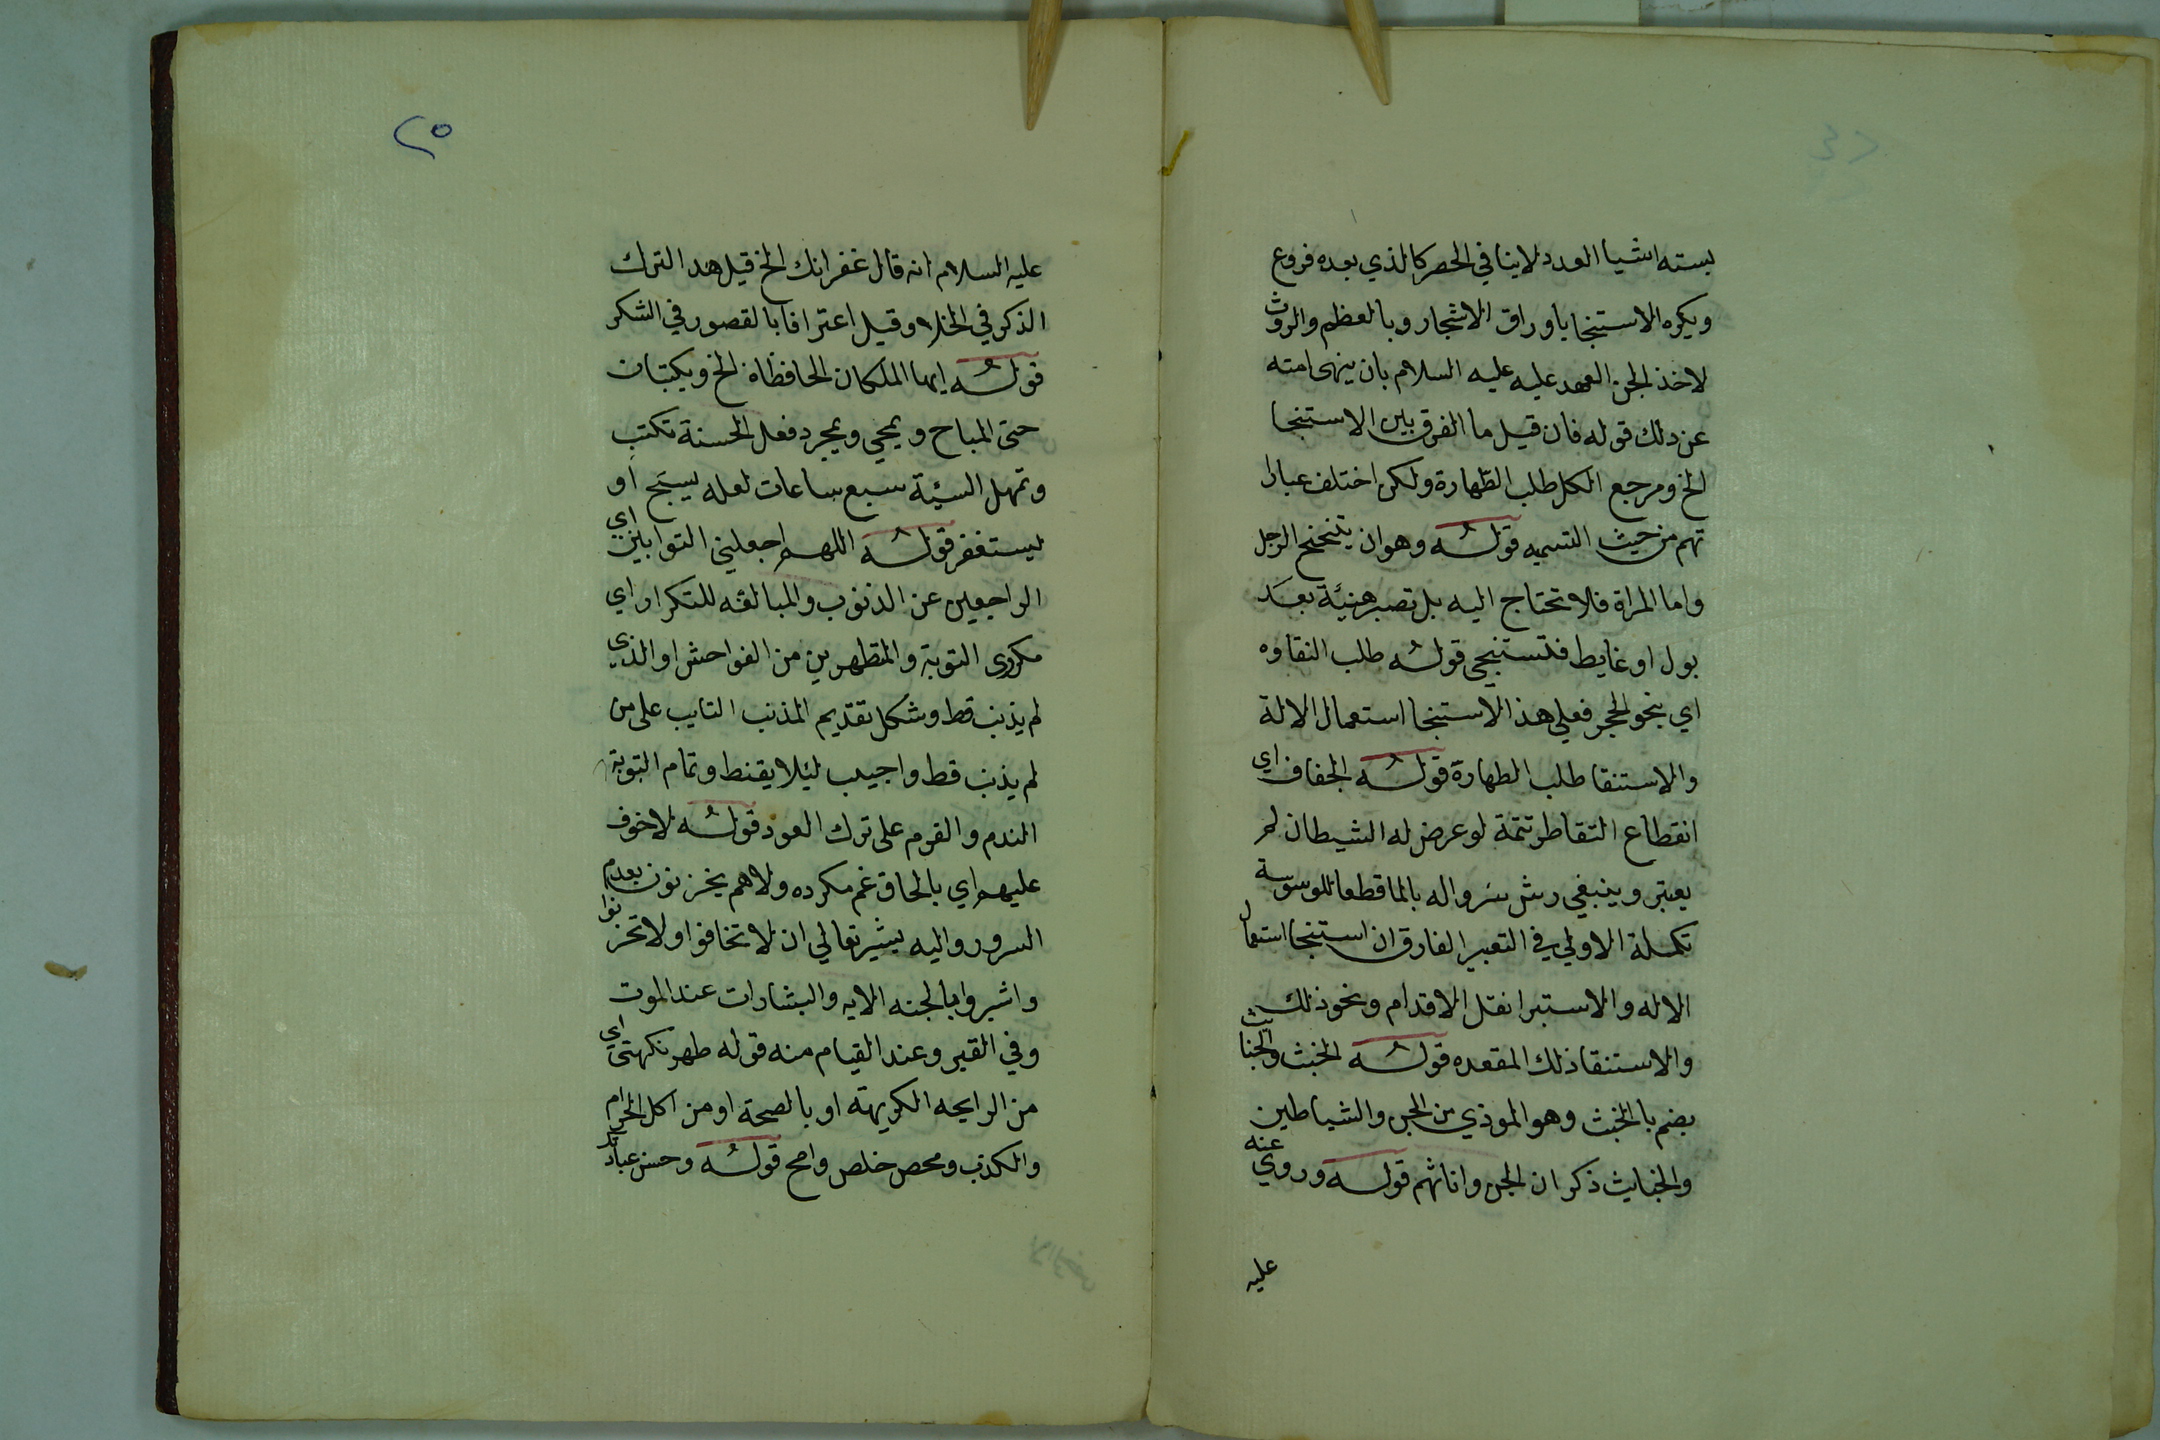 بسته اشيا العدد لا ينافي الحصر كالذي بعده فروع
ويكره الاستنجا باوراق الاشجار وبالعظم والروث
لاخذ الجن العهد عليه عليه السلام بان ينهى امته
عن ذلك قوله فان قيل ما الفرق بين الاستنجا
الخ ومرجع الكل طلب الطهارة ولكن اختلف عبارا
تهم من حيث التسميه قوله وهو ان يتنحنح الرجل
واما المراة فلا تحتاج اليه بل تصبر هنيئة بعد
بول او غايط فتستنجي قوله طلب النقاوه
اي بنحو الحجر فعلى هذا الاستنجا استعمال الالة
والاستنقا طلب الطهارة قوله الجفاف اي
انقطاع التقاطر تتمة لو عرض له الشيطان لم
يعتبر وينبغي رش سرواله بالما قطعا للوسوسة
تكملة الاولي في التعبير الفارق ان استنجا استعمال
الاله والاستبرا نقل الاقدام ونحو ذلك
والاستنقا ذلك المقعده قوله الخبث والخبايث
بضم با الخبث وهو الموذي من الجن والشياطين
والخبايث ذكران الجن واناثهم قوله وروي عنه
عليه
٢٥
عليه السلام انه قال غفرانك الخ قيل هذا الترك
الذكر في الخلاء وقيل اعترافا بالقصور في الشكر
قوله ايها الملكان الحافظان الخ ويكتبان
حتى المباح ويمحي وبمجرد فعل الحسنة تكتب
وتمهل السيئة سبع ساعات لعله يسبح او
ليستغفر قوله اللهم اجعلني التوابين اي
الراجعين عن الذنوب والمبالغه للتكرار اي
مكرري التوبة والمتطهرين من الفواحش او الذي
لم يذنب قط وشكل تقديم المذنب التايب على من
لم يذنب قط واجيب ليلا يقنط وتمام التوبة
الندم والقرم على ترك العود قوله لا خوف
عليهم اي بالحاق غم مكرده ولا هم يحزنون بعدم
السرور واليه يشير تعالي ان لا تخافوا ولا تحزنوا
وابشروا بالجنه الايه والبشارات عند الموت
وفي القبر وعند القيام منه قوله طهر نكهتي اي
من الرايحه الكريهة او بالصحة او من اكل الحرام
والكذب ومحص خلص وامح قوله وحسن عباد